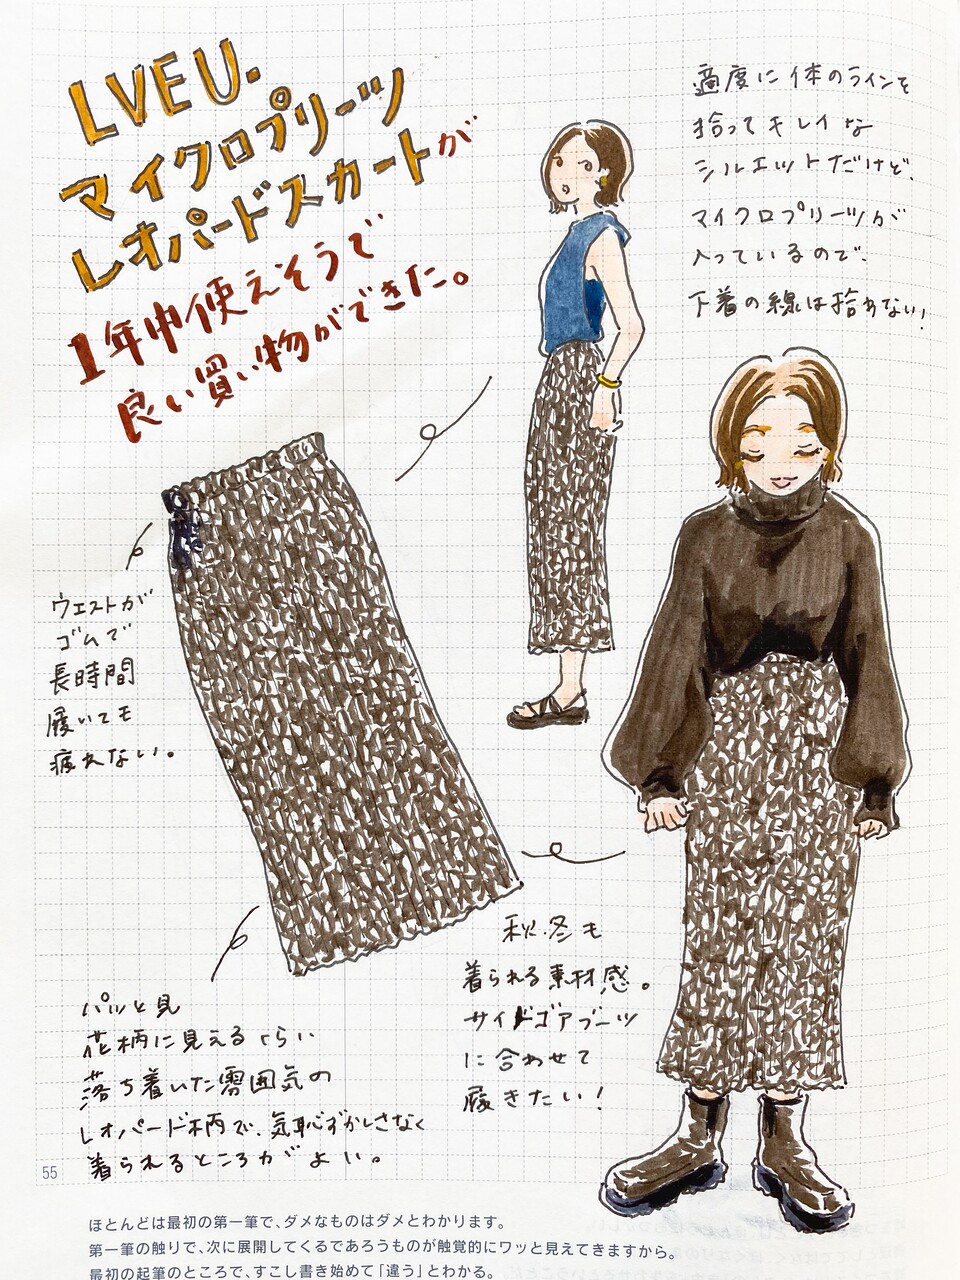 LVE U.
マイクロプリーツ
レオパードスカートが
1年中使えそうで
良い買い物ができた。
適度に体のラインを
拾ってキレイな
シルエットだけど、
マイクロプリーツが
入っているので、
下着の線は拾わない!
ウエストが
ゴムで
長時間
履いても
疲れない。
秋冬も
着られる素材感。
サイドゴアブーツ
に合わせて
履きたい!
パッと見
花柄に見えるくらい
落ち着いた雰囲気の
レオパード柄で、気恥ずかしさなく
着られるところがよい。
55
ほとんどは最初の第一筆で、ダメなものはダメとわかります。
第一筆の触りで、次に展開してくるであろうものが触覚的にワッと見えてきますから。
最初の起筆のところで、すこし書き始めて「違う」とわかる。